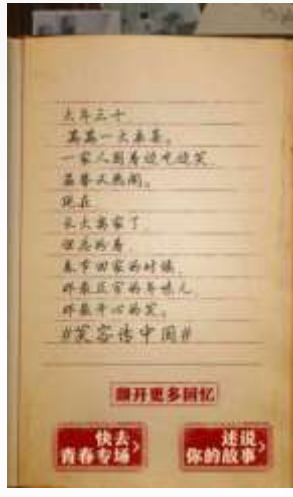 大年三十
满满一大桌菜,
一家人围着边吃边笑
温馨又热闹。
现在
长大离家了,
但总盼着
春节回家的时候
那最正宗的年味儿
那最开心的笑。
#笑容传中国#
翻开更多回忆
快去
青春专场
述说
你的故事